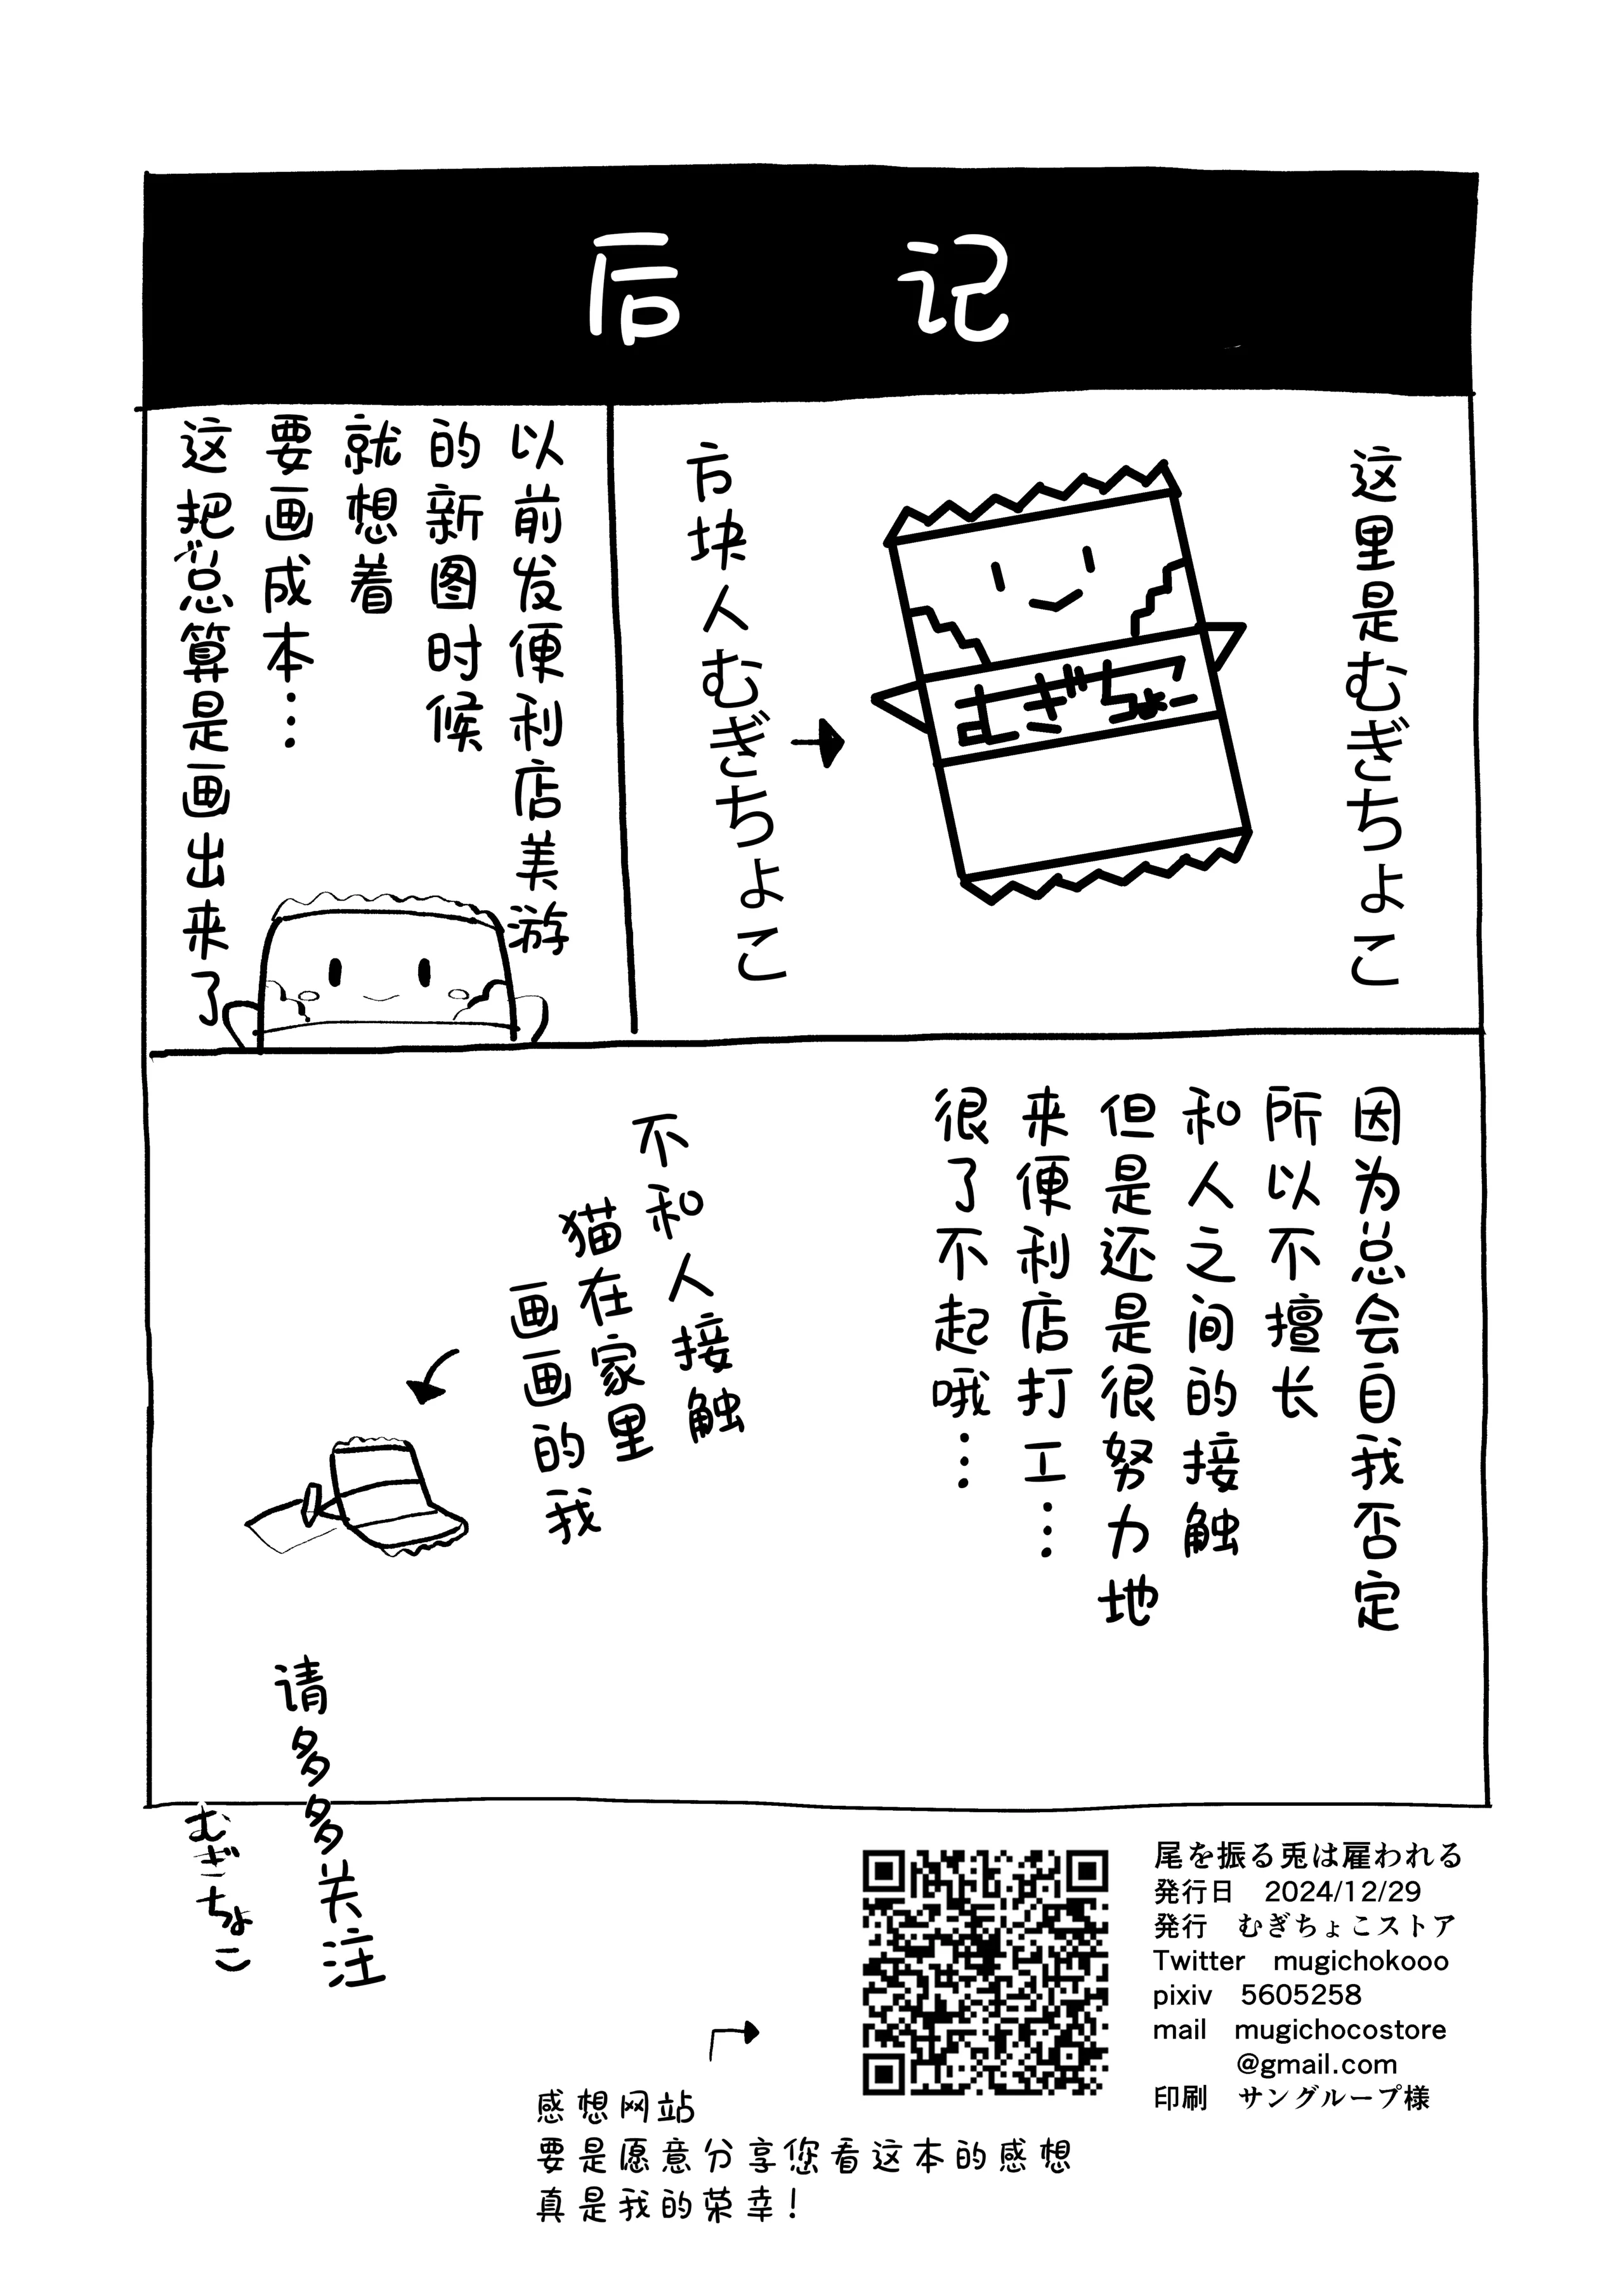 后记
这里是むぎちょこ
むぎちょこ
方块人むぎちょこ
以前发便利店美游
的新图时候
就想着
要画成本…
这把总算是画出来了
因为总会自我否定
所以不擅长
和人之间的接触
但是还是很努力地
来便利店打工…
很了不起哦…
不和人接触
猫在家里
画画的我
请多多关注
むぎちょこ
尾を振る兎は雇われる
発行日　2024/12/29
発行　むぎちょこストア
Twitter　mugichokooo
pixiv　5605258
mail　mugichocostore
@gmail.com
印刷　サングループ様
感想网站
要是愿意分享您看这本的感想
真是我的荣幸！